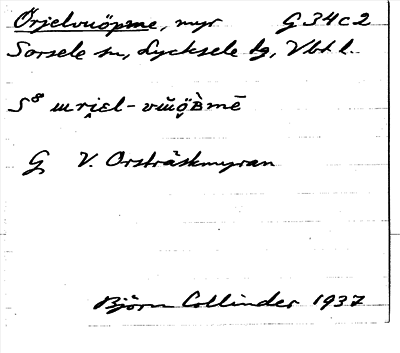 Örjelvuöpme, myr G 34 c 2
Sorsele sn, Lycksele lg, Vbt l.
S⁸ ɯri̭el-vŭo̤ʙ̀mē
G V. Orsträskmyran
Björn Collinder 1937